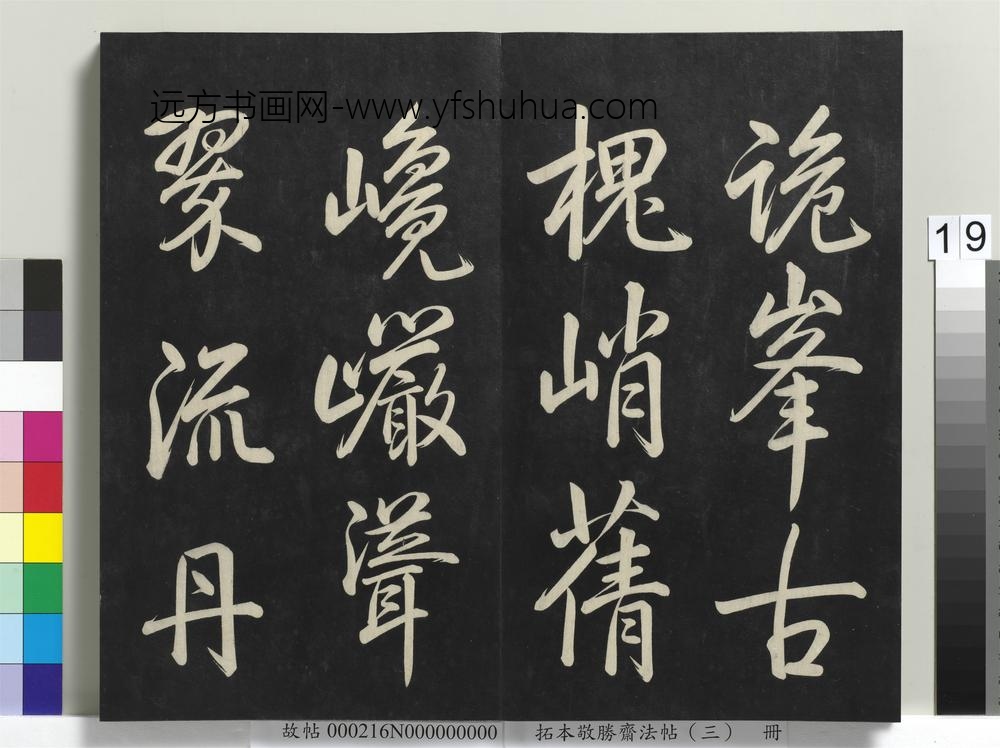 远方书画网-www.yfshuhua.com
詭峯古
槐峭蒨
巉巗聳
翠流丹
19
故帖 000216N000000000 拓本敬勝齋法帖（三） 冊